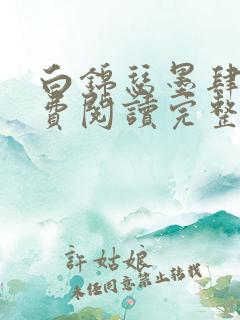 白錦瑟墨肆
費閱讀完整
許姑娘
未經同意禁止轉載